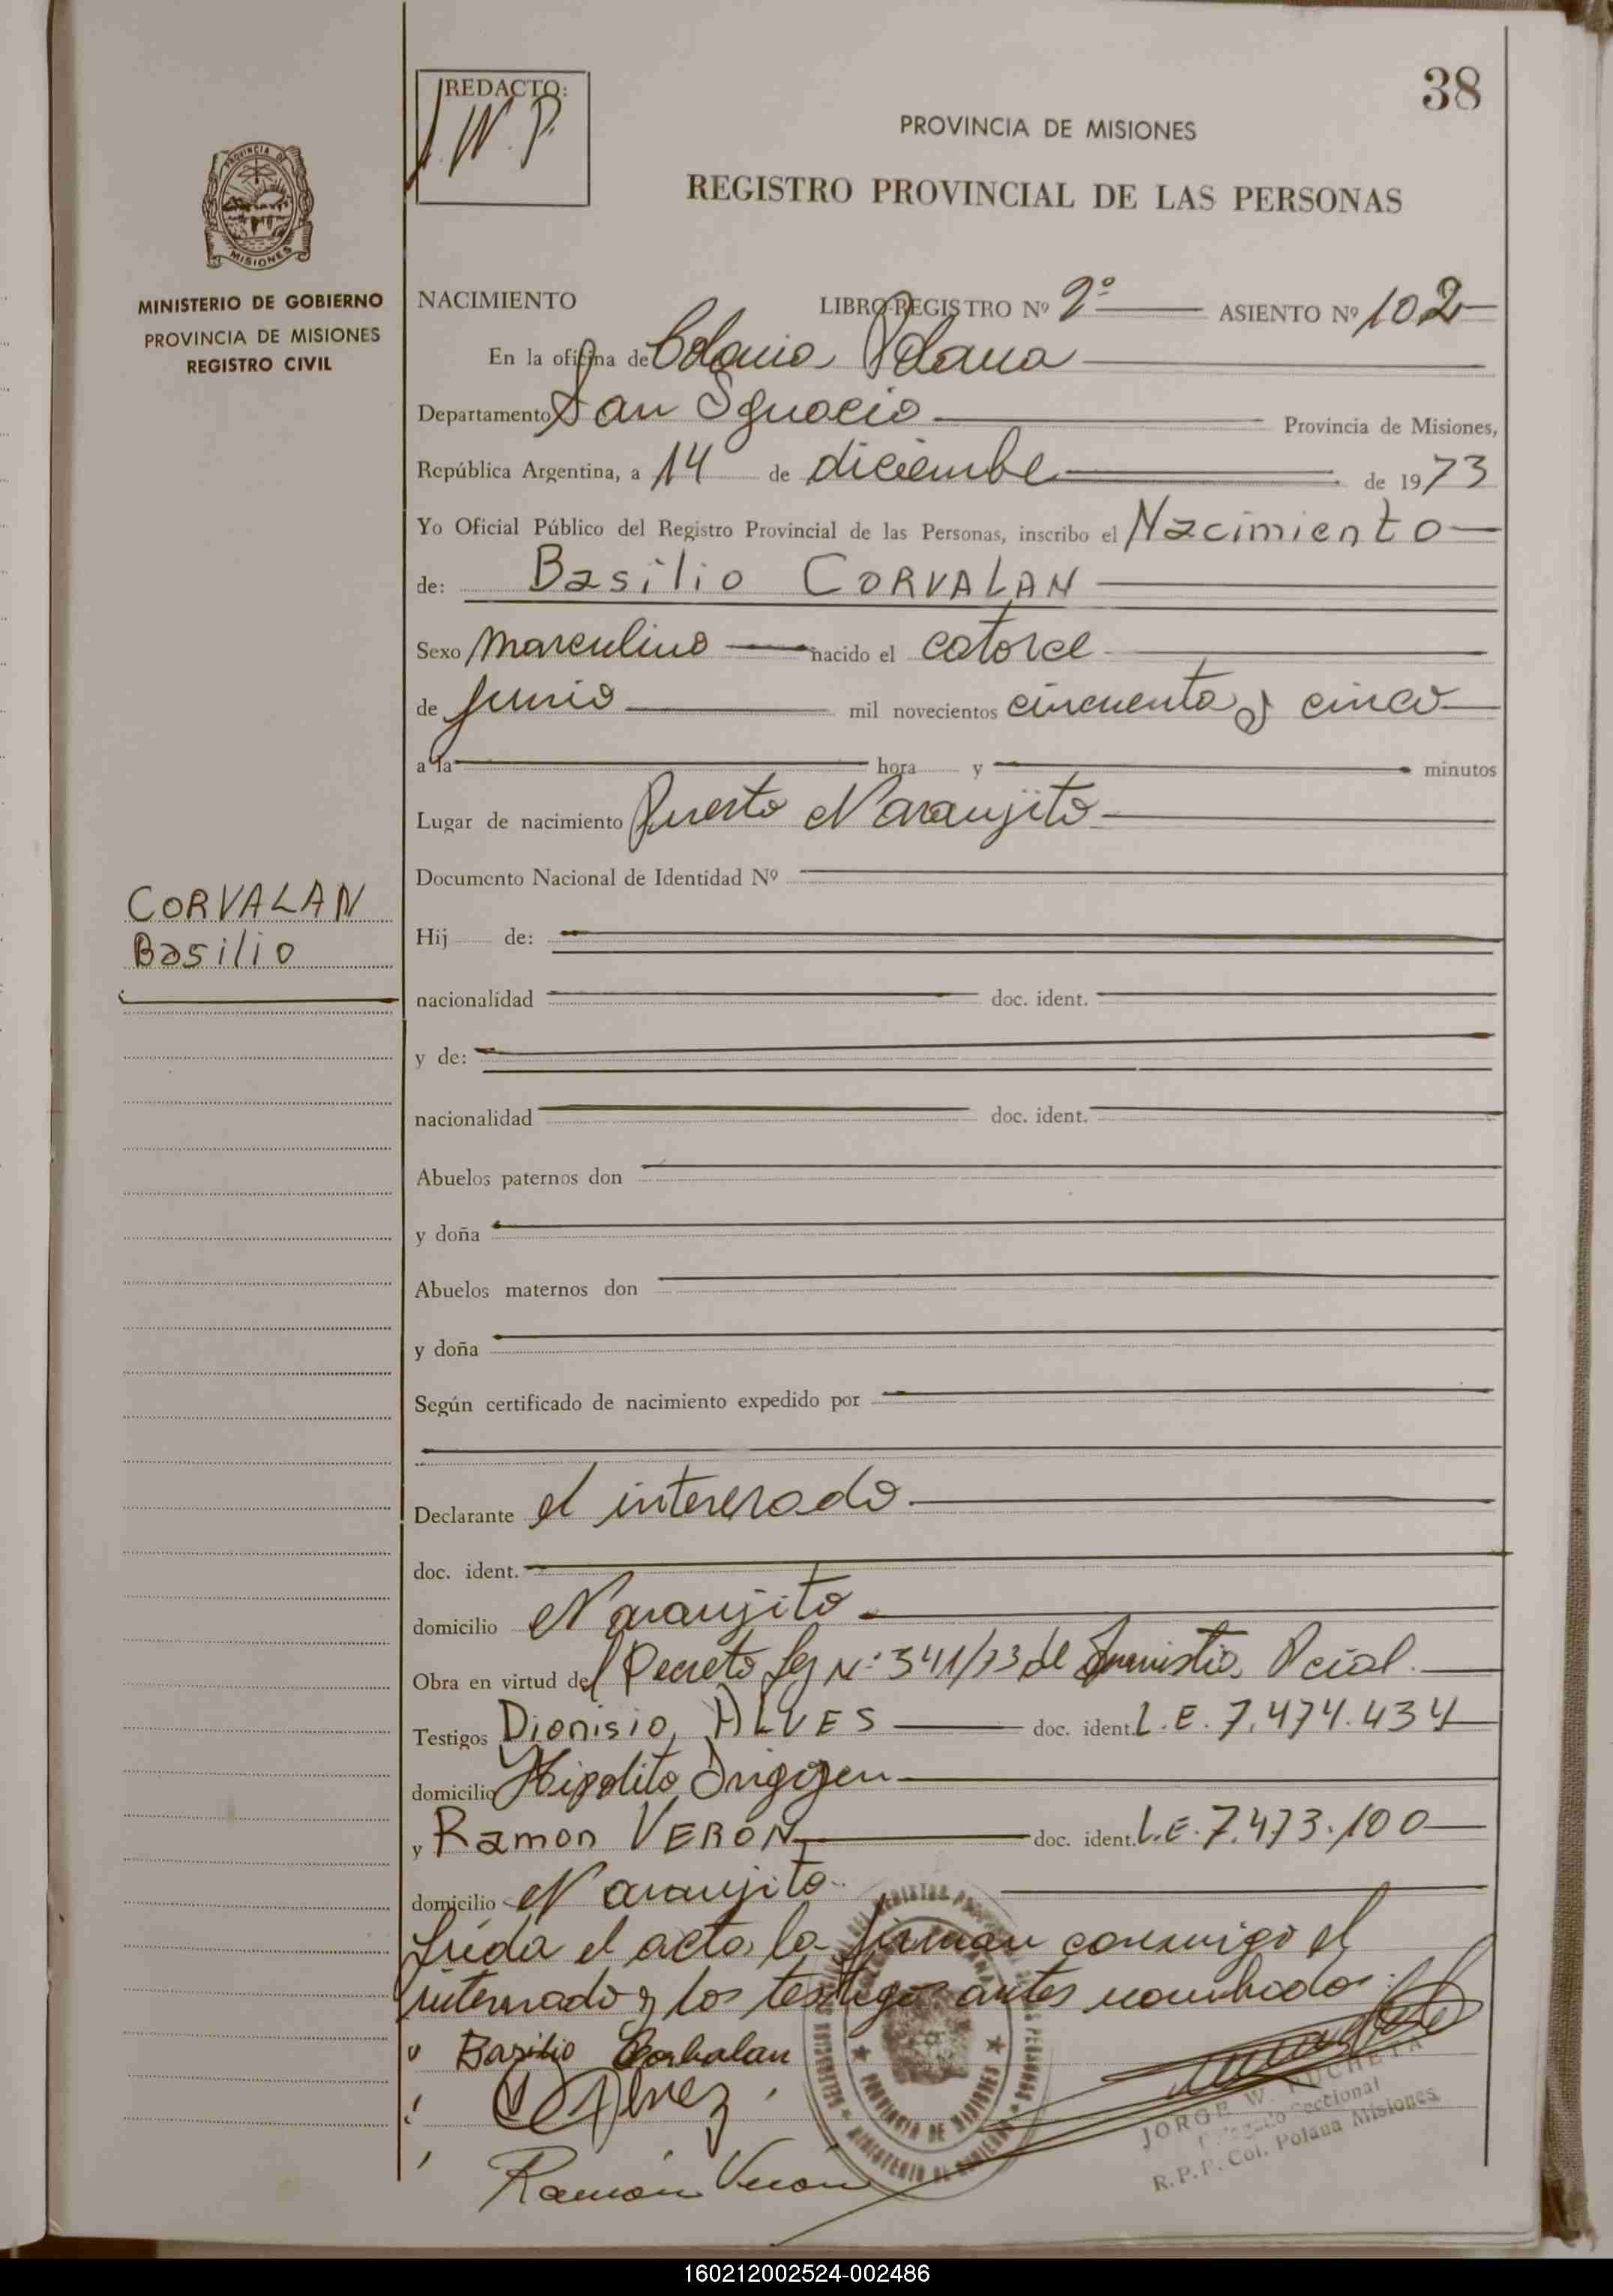 38
REDACTO:
J.W.P.
PROVINCIA DE MISIONES
REGISTRO PROVINCIAL DE LAS PERSONAS
PROVINCIA DE
MISIONES
MINISTERIO DE GOBIERNO
PROVINCIA DE MISIONES
REGISTRO CIVIL
NACIMIENTO LIBRO REGISTRO Nº 2º ASIENTO Nº 102
En la oficina de Colonia Polana
Departamento San Ignacio Provincia de Misiones,
República Argentina, a 14 de diciembre de 1973
Yo Oficial Público del Registro Provincial de las Personas, inscribo el Nacimiento
de: Basilio CORVALAN
Sexo Masculino nacido el catorce
de junio mil novecientos cincuenta y cinco
a la hora y minutos
Lugar de nacimiento Puerto Naranjito
Documento Nacional de Identidad Nº
CORVALAN
Basilio
Hij de:
nacionalidad doc. ident.
y de:
nacionalidad doc. ident.
Abuelos paternos don
y doña
Abuelos maternos don
y doña
Según certificado de nacimiento expedido por
Declarante el interesado
doc. ident.
domicilio Naranjito
Obra en virtud del Decreto Ley Nº 341/73 de Amnistia Pcial.
Testigos Dionisio ALVES doc. ident. L.E. 7.474.434
domicilio Hipolito Irigoyen
y Ramon VERÓN doc. ident. L.E. 7.473.100
domicilio Naranjito
Leida el acta, la firman conmigo el
interesado y los testigos antes nombrados.
Basilio Corbalan
Ramón Verón
PROVINCIA DE MISIONES
JORGE W. PUCHETA
Delegado Seccional
R.P.P. Col. Polana Misiones
160212002524-002486